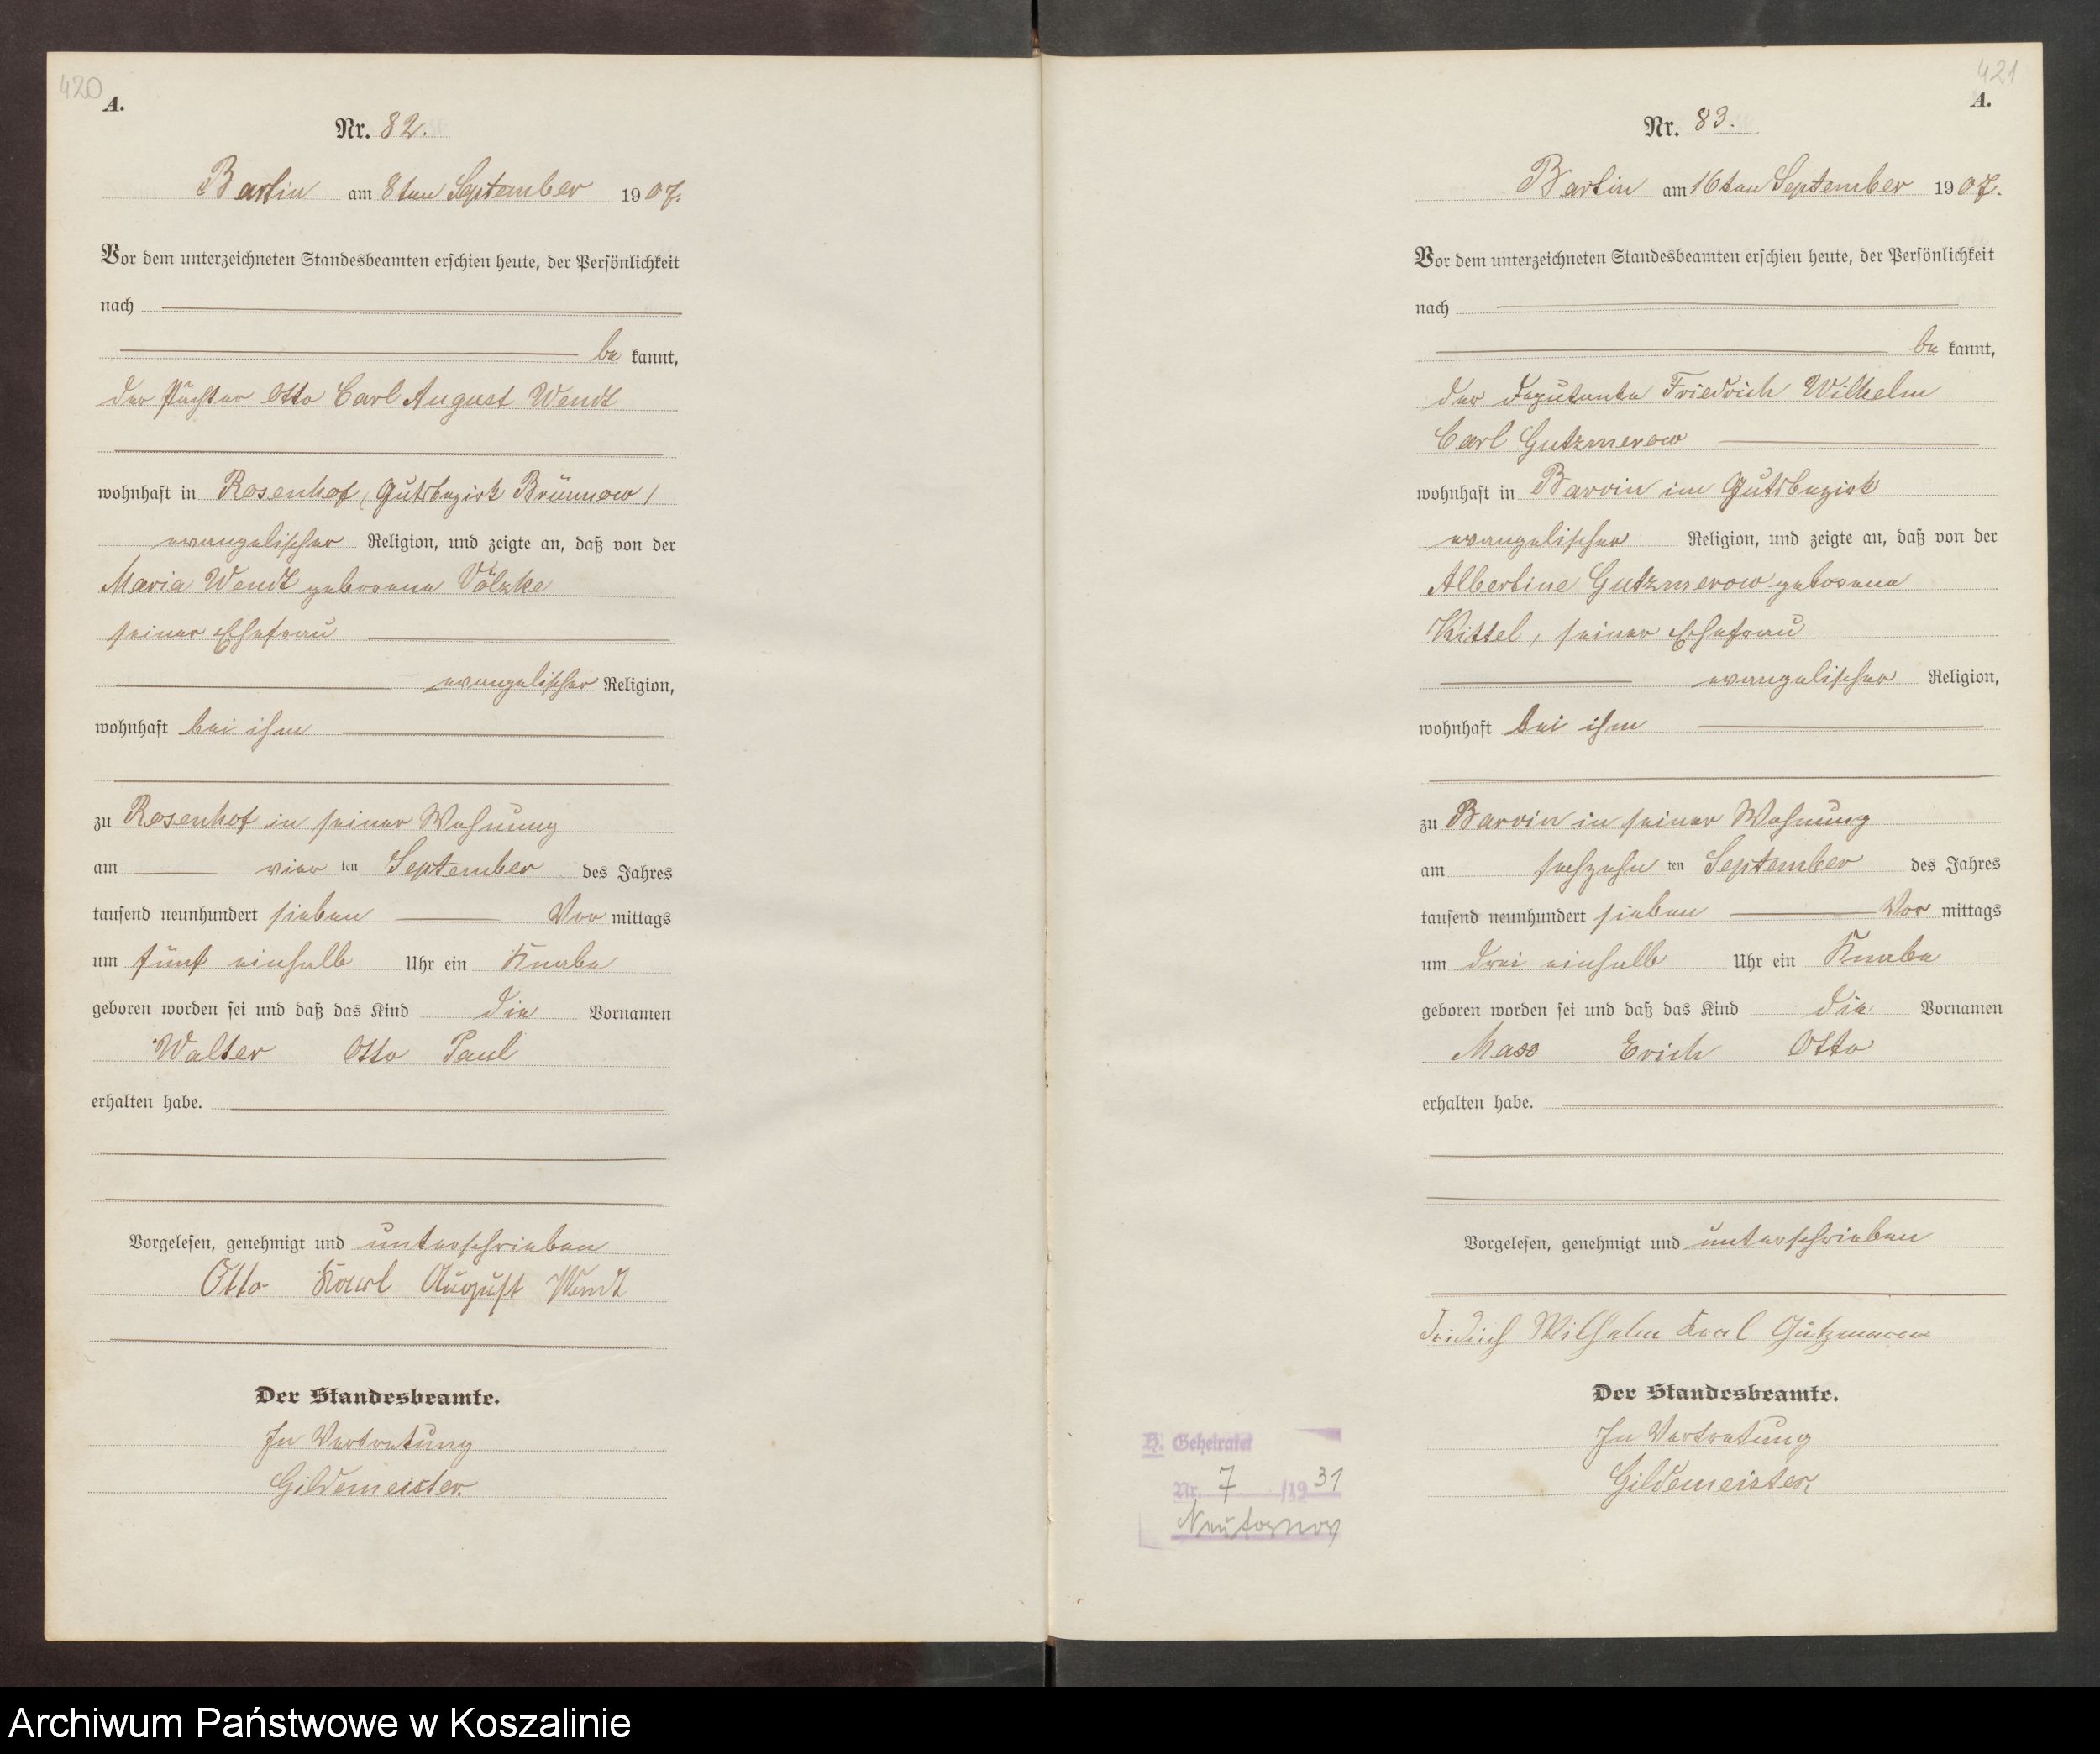 420
A.
Nr. 82.
Bartin am 8ten September 1907.
Vor dem unterzeichneten Standesbeamten erschien heute, der Persönlichkeit
nach
be kannt,
der Pächter Otto Carl August Wendt
wohnhaft in Rosenhof (Gutsbezirk Brünnow)
evangelischer Religion, und zeigte an, daß von der
Maria Wendt geborene Völzke
seiner Ehefrau
evangelischer Religion,
wohnhaft bei ihm
zu Rosenhof in seiner Wohnung
am vier ten September des Jahres
tausend neunhundert sieben Vor mittags
um fünf einhalb Uhr ein Knabe
geboren worden sei und daß das Kind die Vornamen
Walter Otto Paul
erhalten habe.
Vorgelesen, genehmigt und unterschrieben
Otto Karl August Wendt
Der Standesbeamte.
In Vertretung
Gildemeister.
421
A.
Nr. 83.
Bartin am 16ten September 1907.
Vor dem unterzeichneten Standesbeamten erschien heute, der Persönlichkeit
nach
be kannt,
der Deputante Friedrich Wilhelm
Carl Gutzmerow
wohnhaft in Barvin im Gutsbezirk
evangelischer Religion, und zeigte an, daß von der
Albertine Gutzmerow geborene
Kittel, seiner Ehefrau
evangelischer Religion,
wohnhaft bei ihm
zu Barvin in seiner Wohnung
am sechzehn ten September des Jahres
tausend neunhundert sieben Vor mittags
um drei einhalb Uhr ein Knabe
geboren worden sei und daß das Kind die Vornamen
Max Erich Otto
erhalten habe.
Vorgelesen, genehmigt und unterschrieben
Fridrich Wilhelm Karl Gützmerow
Der Standesbeamte.
In Vertretung
Gildemeister.
H. Geheiratet
Nr. 7 /1931
Archiwum Państwowe w Koszalinie